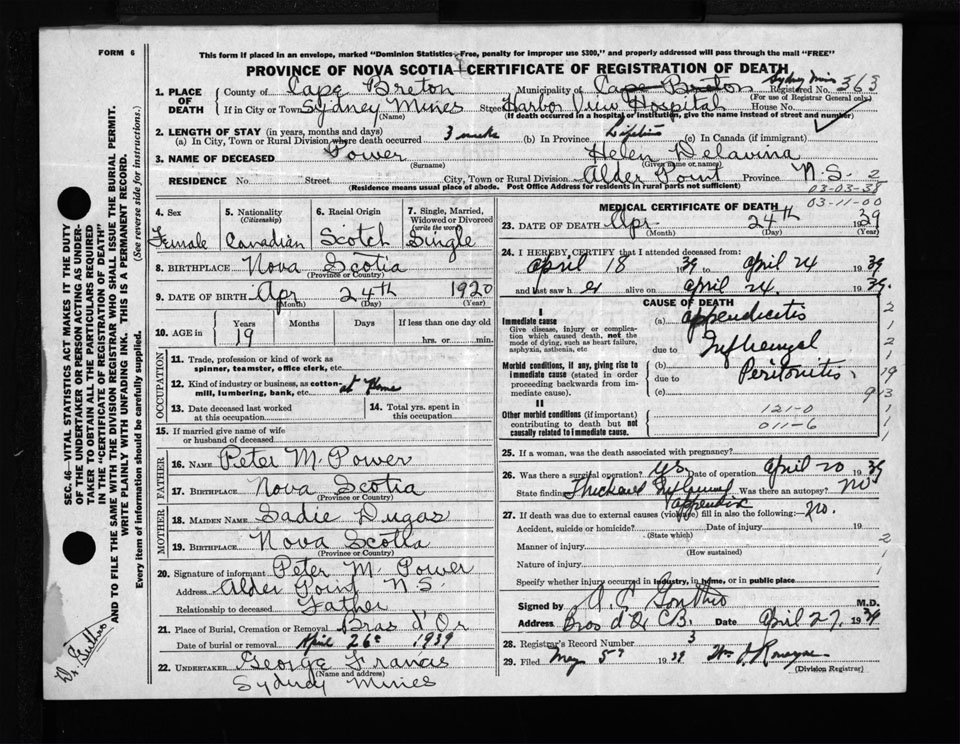 FORM 6
This form if placed in an envelope, marked "Dominion Statistics—Free, penalty for improper use $300," and properly addressed will pass through the mail "FREE"
PROVINCE OF NOVA SCOTIA—CERTIFICATE OF REGISTRATION OF DEATH
Sydney Mines
1. PLACE OF DEATH County of Cape Breton Municipality of Cape Breton Registered No. 363
(For use of Registrar General only)
If in City or Town Sydney Mines (Name) Street Harbor View Hospital House No.
(If death occurred in a hospital or institution, give the name instead of street and number)
2. LENGTH OF STAY (in years, months and days)
(a) In City, Town or Rural Division where death occurred 3 weeks (b) In Province Lifetime (c) In Canada (if immigrant)
3. NAME OF DECEASED Power (Surname) Helen Delavina (Given name or names)
RESIDENCE No. Street City, Town or Rural Division Alder Point Province N.S. 2
(Residence means usual place of abode. Post Office Address for residents in rural parts not sufficient)
03-03-38
03-11-00
4. Sex Female
5. Nationality (Citizenship) Canadian
6. Racial Origin Scotch
7. Single, Married, Widowed or Divorced (write the word) Single
8. BIRTHPLACE Nova Scotia
(Province or Country)
9. DATE OF BIRTH Apr (Month) 24th (Day) 1920 (Year)
10. AGE in Years 19 Months Days If less than one day old hrs. or min.
OCCUPATION
11. Trade, profession or kind of work as spinner, teamster, office clerk, etc.
12. Kind of industry or business, as cotton-mill, lumbering, bank, etc. at Home
13. Date deceased last worked at this occupation
14. Total yrs. spent in this occupation
15. If married give name of wife or husband of deceased
FATHER
16. NAME Peter M. Power
17. BIRTHPLACE Nova Scotia
(Province or Country)
MOTHER
18. MAIDEN NAME Sadie Dugas
19. BIRTHPLACE Nova Scotia
(Province or Country)
20. Signature of informant Peter M. Power
Address Alder Point N S
Relationship to deceased Father
21. Place of Burial, Cremation or Removal Bras d'Or
Date of burial or removal April 26 1939
22. UNDERTAKER George Francis
(Name and address)
Sydney Mines
MEDICAL CERTIFICATE OF DEATH
23. DATE OF DEATH Apr (Month) 24th (Day) 1939 (Year)
24. I HEREBY CERTIFY that I attended deceased from:
April 18 1939 to April 24 1939
and last saw h er alive on April 24 1939.
CAUSE OF DEATH
I
Immediate cause
Give disease, injury or complication which caused death, not the mode of dying, such as heart failure, asphyxia, asthenia, etc
(a) appendicitis
due to
Morbid conditions, if any, giving rise to immediate cause (stated in order proceeding backwards from immediate cause).
(b) Peritonitis
due to
(c)
II
Other morbid conditions (if important) contributing to death but not causally related to immediate cause.
121-0
011-6
25. If a woman, was the death associated with pregnancy?
26. Was there a surgical operation? yes. Date of operation April 20 1939
State finding Thickened appendix Was there an autopsy? No
27. If death was due to external causes (violence) fill in also the following:— No.
Accident, suicide or homicide? Date of injury 19
(State which)
Manner of injury
(How sustained)
Nature of injury
Specify whether injury occurred in industry, in home, or in public place
Signed by M.D.
Address Bras d'Or C.B. Date April 27, 1939
28. Registrar's Record Number 3
29. Filed May 5th 1939
(Division Registrar)
SEC. 46—VITAL STATISTICS ACT MAKES IT THE DUTY
OF THE UNDERTAKER OR PERSON ACTING AS UNDER-
TAKER TO OBTAIN ALL THE PARTICULARS REQUIRED
IN THE "CERTIFICATE OF REGISTRATION OF DEATH"
AND TO FILE THE SAME WITH THE DIVISION REGISTRAR WHO SHALL ISSUE THE BURIAL PERMIT.
WRITE PLAINLY WITH UNFADING INK. THIS IS A PERMANENT RECORD.
Every item of information should be carefully supplied. (See reverse side for instructions.)